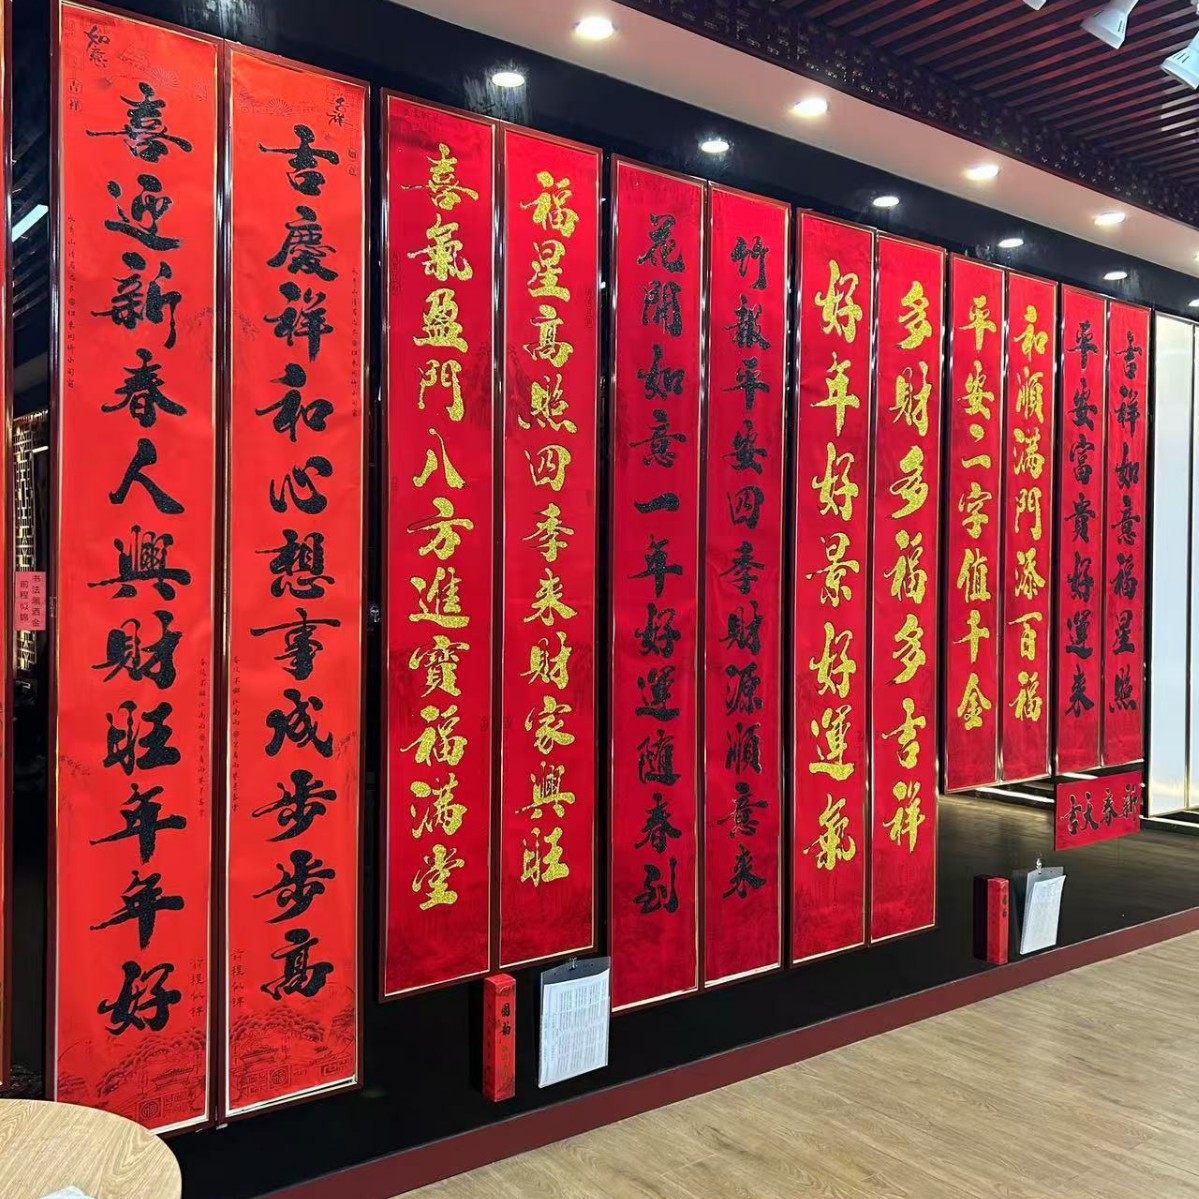 如意
吉祥
喜迎新春人興財旺年年好
吉祥
如意
吉慶祥和心想事成步步高
喜氣盈門八方進寶福满堂
福星高照四季来财家興旺
花開如意一年好運随春到
竹報平安四季财源順意来
好年好景好運氣
多财多福多吉祥
平安二字值千金
和順满門添百福
平安富貴好運来
吉祥如意福星照
新春大吉
书法黑洒金
前程似锦
前程似锦
前程似锦
国韵